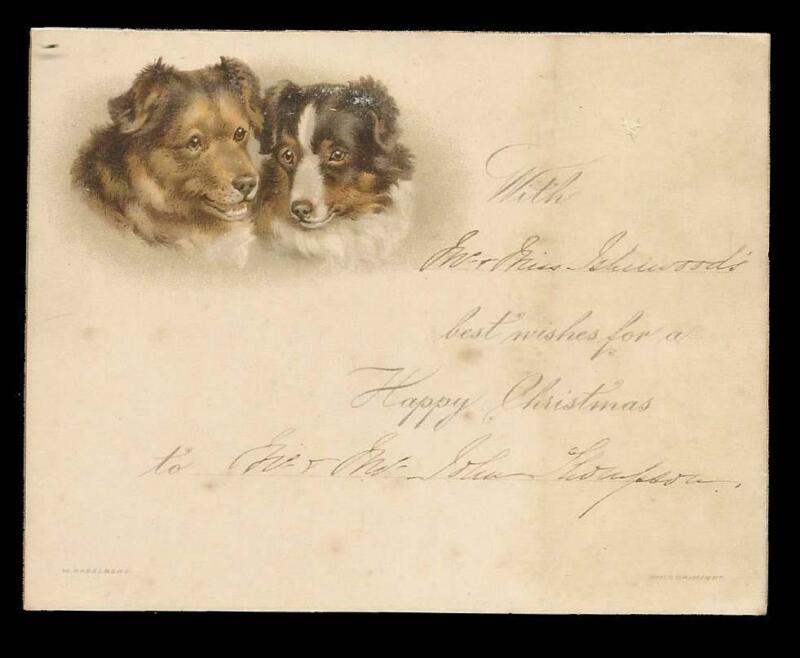 With
Mr & Miss Isherwood's
best wishes for a
Happy Christmas
to Mr & Mrs John Thompson.
W. HAGELBERG